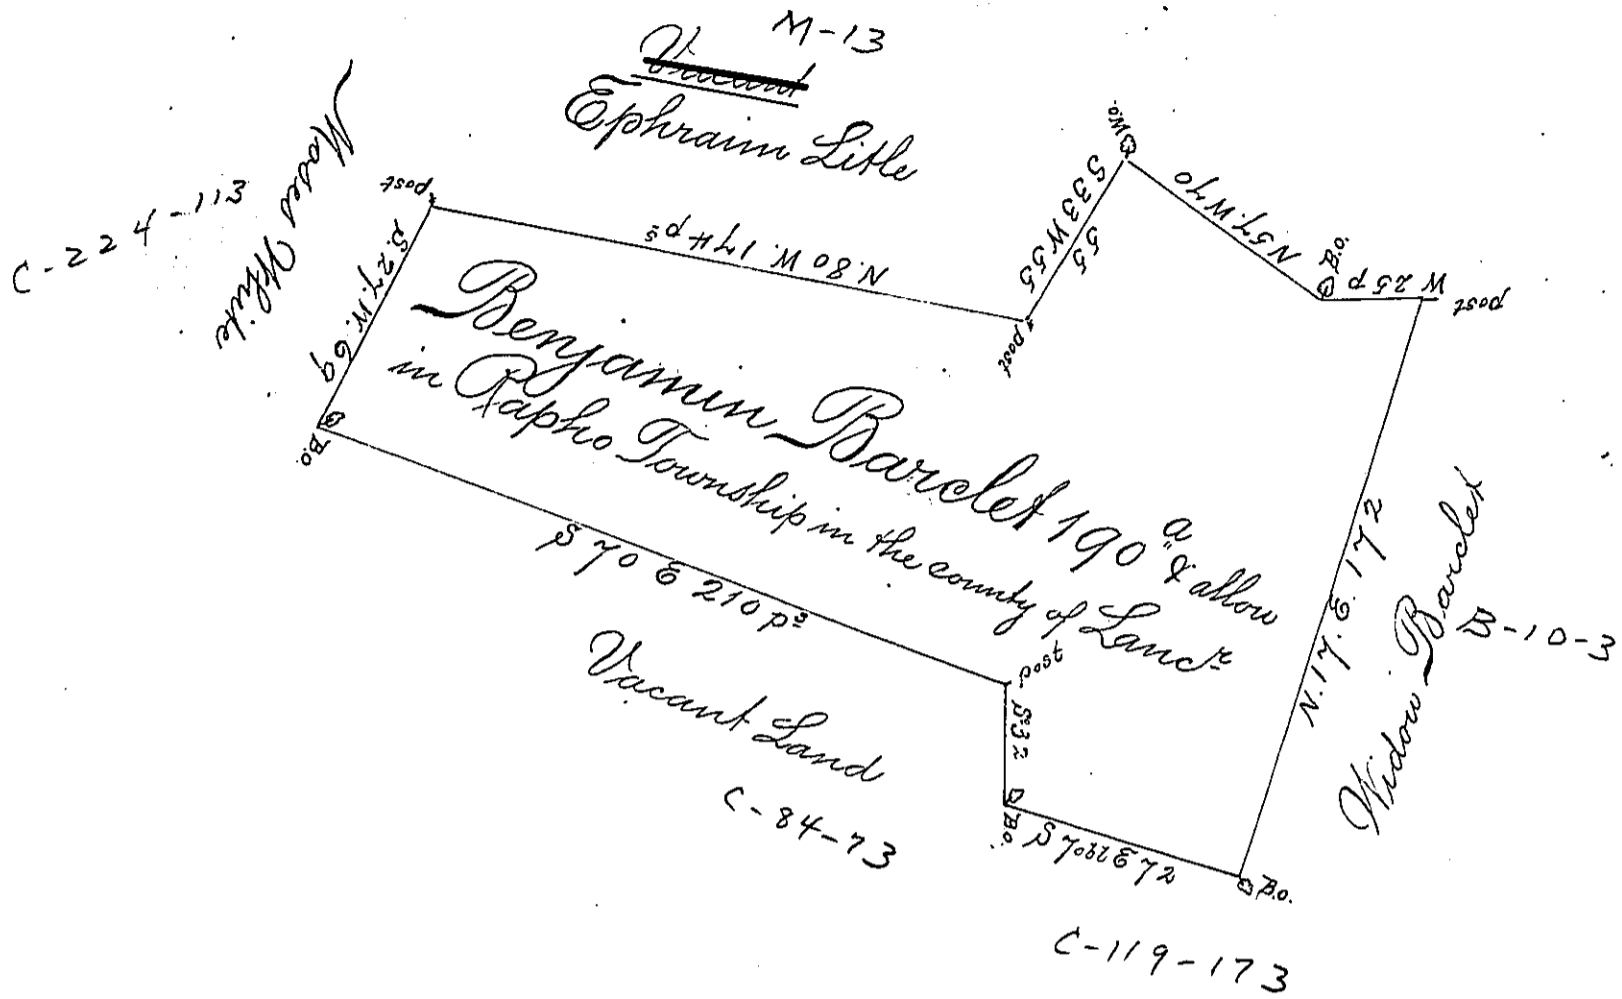 M-13
Vacant
Ephraim Litle
C-224-113
Moses White
post
S. 27. W. 69
B.O.
N. 80 W. 174 ps
post
S 33 W 55
55
W.O.
N 57. W. 70
B.O.
W 25 p
post
Benjamin Barclet 190 a & allow
in Rapho Township in the county of Lancr
S 70 E 210 ps
Vacant Land
C-84-73
Post
S 32
B.O.
E 72
B.O.
C-119-173
N. 17. E. 172
Widow Barclet
B-10-3